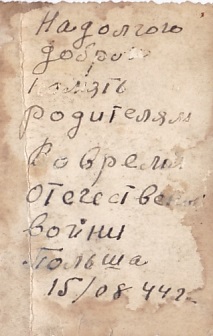 На долгою
добрую
память
родителям
Во время
отечествен
войни
Польша
15/08 44 г.